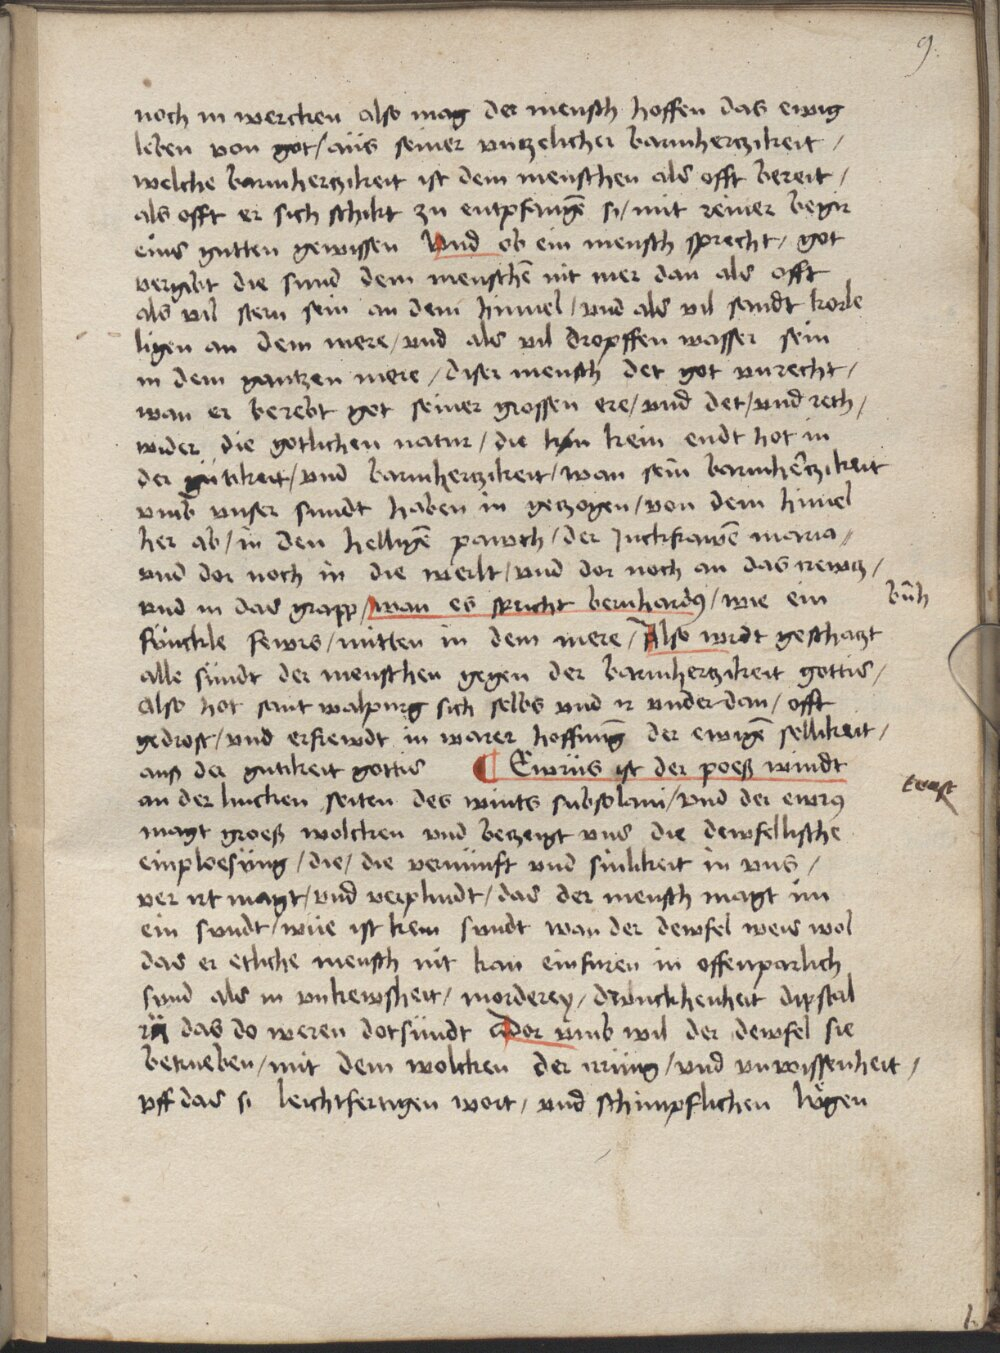 9
noch in wercken also mag der mensch hoffen das ewig
leben von got / aüs seiner vntzelicher barmherczikeit /
welche barmherczikeit ist dem menschen als offt bereit /
als offt er sich schikt zu entpfangē si / mit reiner begir
eins gutten gewissen Vnd ob ein mensch sprecht / got
vergibt die sund dem menschē nit mer dan als offt
als vil stern sein an dem himel / vnd als vil sandt korle
ligen an dem mere / vnd als vil dropffen wasser sein
in dem gantzen mere / diser mensch det got vnrecht /
wan er berebt got seiner grossen ere / vnd det / vnd rech /
wider die gotlichen natur / die kein endt hot in
der gütikeit / vnd barmherczikeit / wan sein barmherczikeit
vmb vnser sundt haben in geczogen / von dem himel
her ab / in den helligē pawch / der Juckfrawē maria //
vnd dor noch in die werlt / vnd dor noch an das crewcz /
vnd in das grapp / wan es spricht bernhardꝰ / wie ein
bn̄h
fünckle fewrs / mitten in dem mere / Also wirdt geschaczt
alle sündt der menschen gegen der barmherczikeit gottis /
Also hot sant walpurg sich selbs vnd ir vnderdan / offt
gedrost / vnd erfrewdt in warer hoffnūg der ewigē sellikeit /
auß der gutikeit gottis ¶ Ewrüs ist der poeß windt
an der lincken seiten des wints subsolani / vnd der ewrꝰ
magt groeß wolcken vnd beczeigt vns die dewfellische
einploesüng / die / die vernünft vnd sinlikeit in vns /
ver irt magt / vnd verplindt / das der mensch magt im
ein sundt / wüe ist kein sundt wan der dewfel weis wol
das er etliche mensch nit kan einfüren in offenparlich
sund als in vnkewsheit / morderey / drünckhenheit dipstal
das do weren dotsündt Dor vmb wil der dewfel sie
betrüeben / mit dem wolcken der irrüng / vnd vnwissenheit /
vff das si leichtfertigen wort / vnd schimpflichen lügen